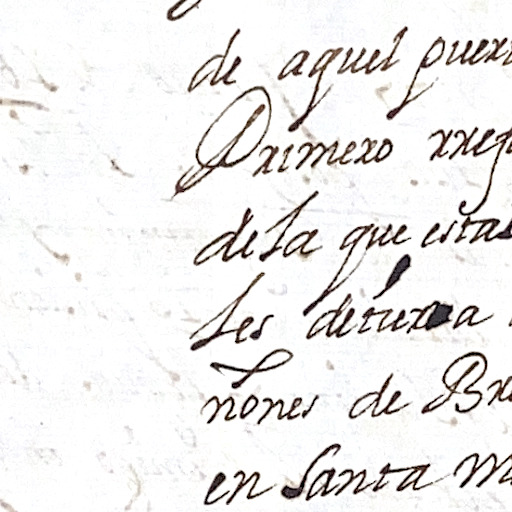 de aquel puer
Primero rreg
de la que esta
les detierra
ñones de Br
en santa m